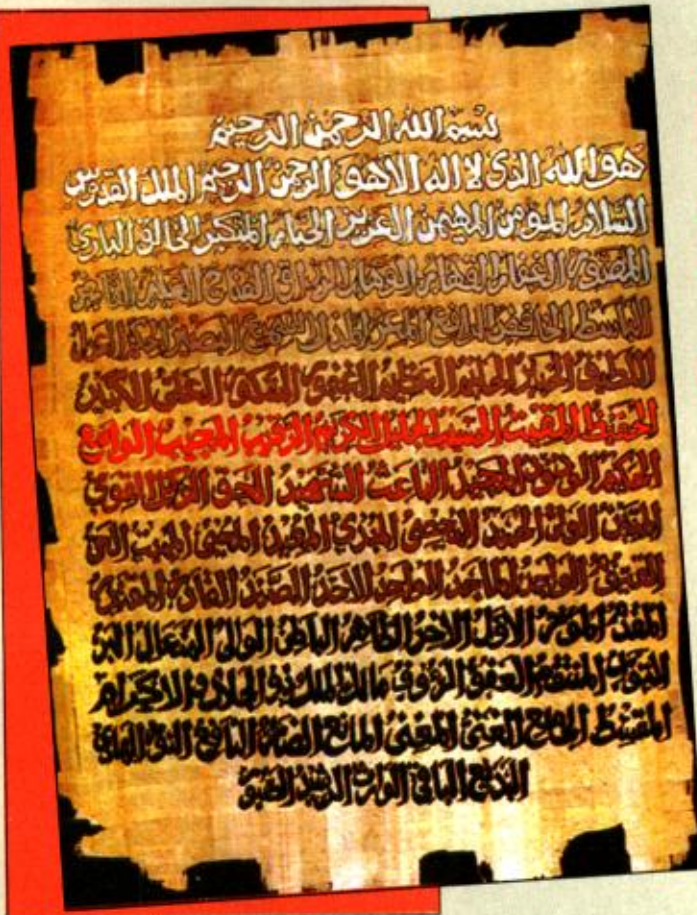 بسم الله الرحمن الرحيم
هو الله الذى لا اله الا هو الرحمن الرحيم الملك القدوس
السلام المؤمن المهيمن العزيز الجبار المتكبر الخالق البارئ
المصور الغفار القهار الوهاب الرزاق الفتاح العليم القابض
الباسط الخافض الرافع المعز المذل السميع البصير الحكم العدل
اللطيف الخبير الحليم العظيم الغفور الشكور العلى الكبير
الحفيظ المقيت الحسيب الجليل الكريم الرقيب المجيب الواسع
الحكيم الودود المجيد الباعث الشهيد الحق الوكيل القوى
المتين الولى الحميد المحصى المبدئ المعيد المحيى المميت الحى
القيوم الواجد الماجد الواحد الاحد الصمد القادر المقتدر
المقدم المؤخر الاول الاخر الظاهر الباطن الوالى المتعال البر
التواب المنتقم العفو الرؤوف مالك الملك ذو الجلال و الاكرام
المقسط الجامع الغنى المغنى المانع الضار النافع النور الهادى
البديع الباقى الوارث الرشيد الصبور